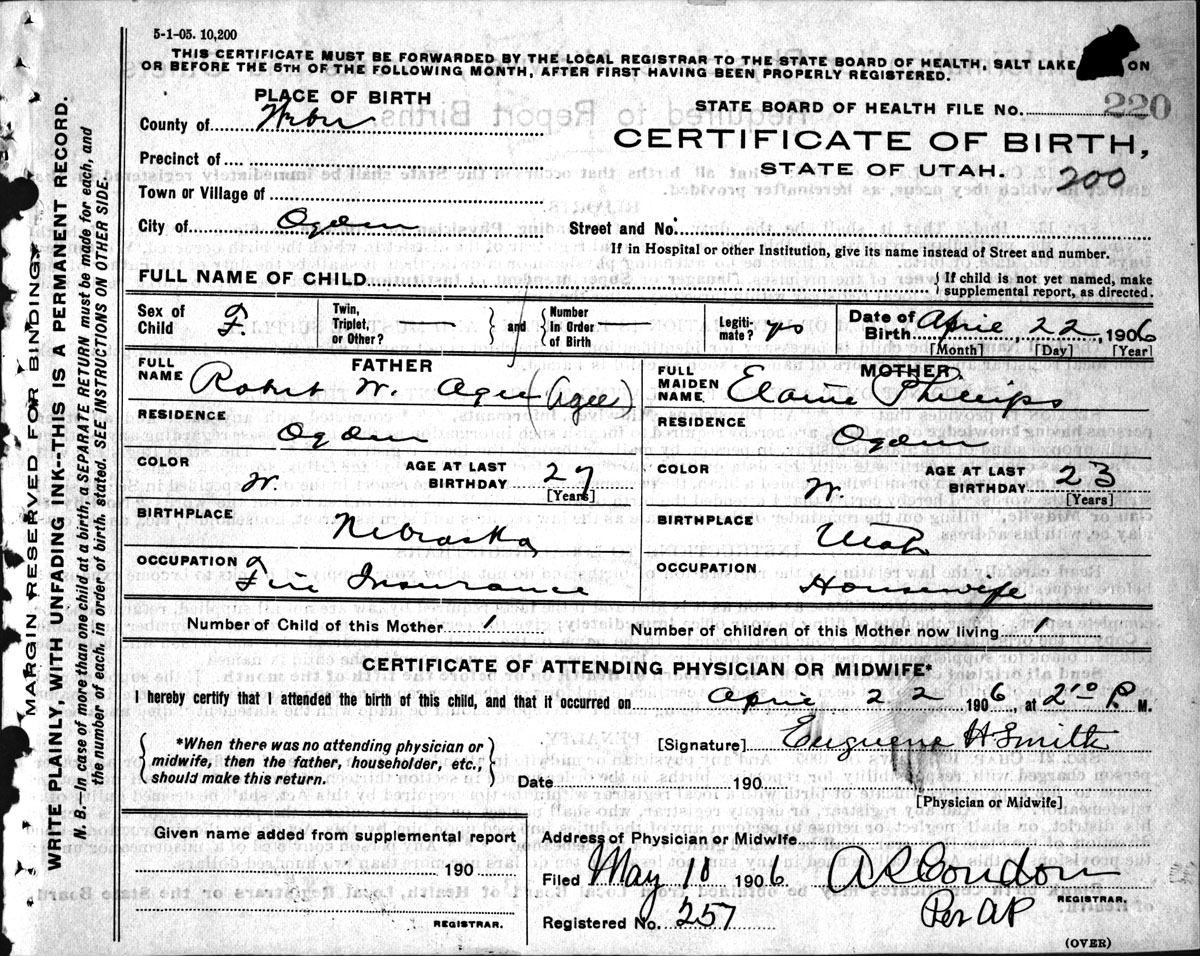 5-1-05. 10,200
THIS CERTIFICATE MUST BE FORWARDED BY THE LOCAL REGISTRAR TO THE STATE BOARD OF HEALTH, SALT LAKE ON
OR BEFORE THE 5TH OF THE FOLLOWING MONTH, AFTER FIRST HAVING BEEN PROPERLY REGISTERED.
PLACE OF BIRTH
STATE BOARD OF HEALTH FILE NO. 220
County of Weber
CERTIFICATE OF BIRTH,
Precinct of
STATE OF UTAH. 200
Town or Village of
City of Ogden Street and No.
If in Hospital or other Institution, give its name instead of Street and number.
FULL NAME OF CHILD { If child is not yet named, make
supplemental report, as directed.
Sex of Child F. Twin, Triplet, or Other? } and { Number In Order of Birth Legiti-mate? Date of Birth April 22, 1906
[Month] [Day] [Year]
FATHER
FULL NAME Robert W. Agee (Agee)
MOTHER
FULL MAIDEN NAME Elaine Phillips
RESIDENCE Ogden
RESIDENCE Ogden
COLOR W. AGE AT LAST BIRTHDAY 27 [Years]
COLOR W. AGE AT LAST BIRTHDAY 23 [Years]
BIRTHPLACE Nebraska
BIRTHPLACE Utah
OCCUPATION Fire Insurance
OCCUPATION Housewife
Number of Child of this Mother 1 Number of children of this Mother now living 1
CERTIFICATE OF ATTENDING PHYSICIAN OR MIDWIFE*
I hereby certify that I attended the birth of this child, and that it occurred on April 22 1906, at 2 10 P. M.
{ *When there was no attending physician or
midwife, then the father, householder, etc.,
should make this return. }
[Signature] Euguene H Smith
Date 190
[Physician or Midwife]
Given name added from supplemental report
190
REGISTRAR.
Address of Physician or Midwife
Filed May 10 1906 A R Condon
REGISTRAR.
Per AP
Registered No. 257
(OVER)
MARGIN RESERVED FOR BINDING
WRITE PLAINLY, WITH UNFADING INK--THIS IS A PERMANENT RECORD.
N. B.—In case of more than one child at a birth, a SEPARATE RETURN must be made for each, and
the number of each, in order of birth, stated. SEE INSTRUCTIONS ON OTHER SIDE.